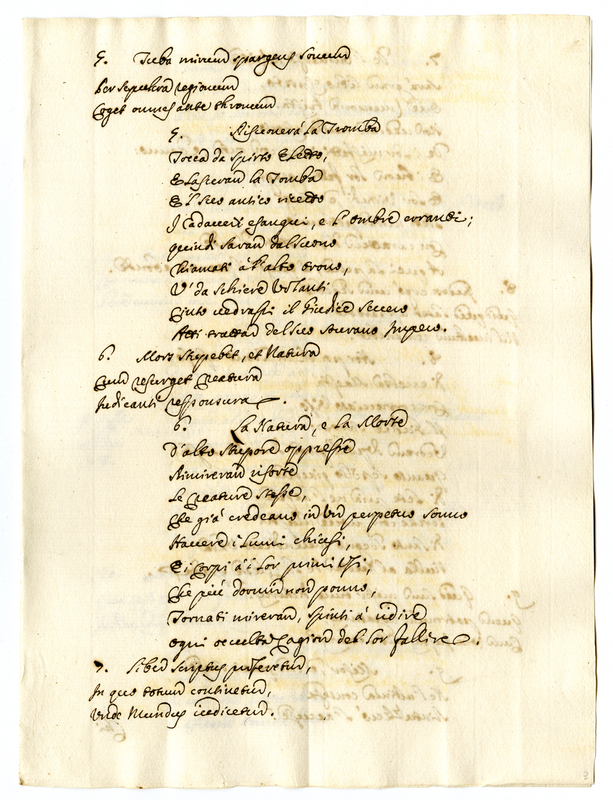 5. Tuba mirum spargens sonum
Per sepulcra regionum
Coget omnes ante thronum
5. Risonerà la Tromba
Tocca da spirto Eletto,
E lasceran la Tomba
E 'l suo antico ricetto
I cadaveri esangui, e l'ombre erranti;
quindi saran dal suono
Chiamati à l'alto trono,
V' da schiere volanti
Cinto vedrassi il Giudice severo
Atti trattar del suo sourano Impero.
6. Mors stupebit, et Natura
Cum resurget Creatura
Judicanti responsura.
6. La Natura, e la Morte
D'alto stupore oppresse
Rimireran risorte
Le Creature stesse,
Che già credeano in un perpetuo sonno
Hauere i lumi chiusi,
E i Corpi à i lor primi Usi,
Che più dormir non ponno,
Tornati mireran, spinti à udire
ogni occulta Cagion del lor fallire.
7. Liber scriptus proferetur,
In quo totum continetur,
Unde Mundus iudicetur.